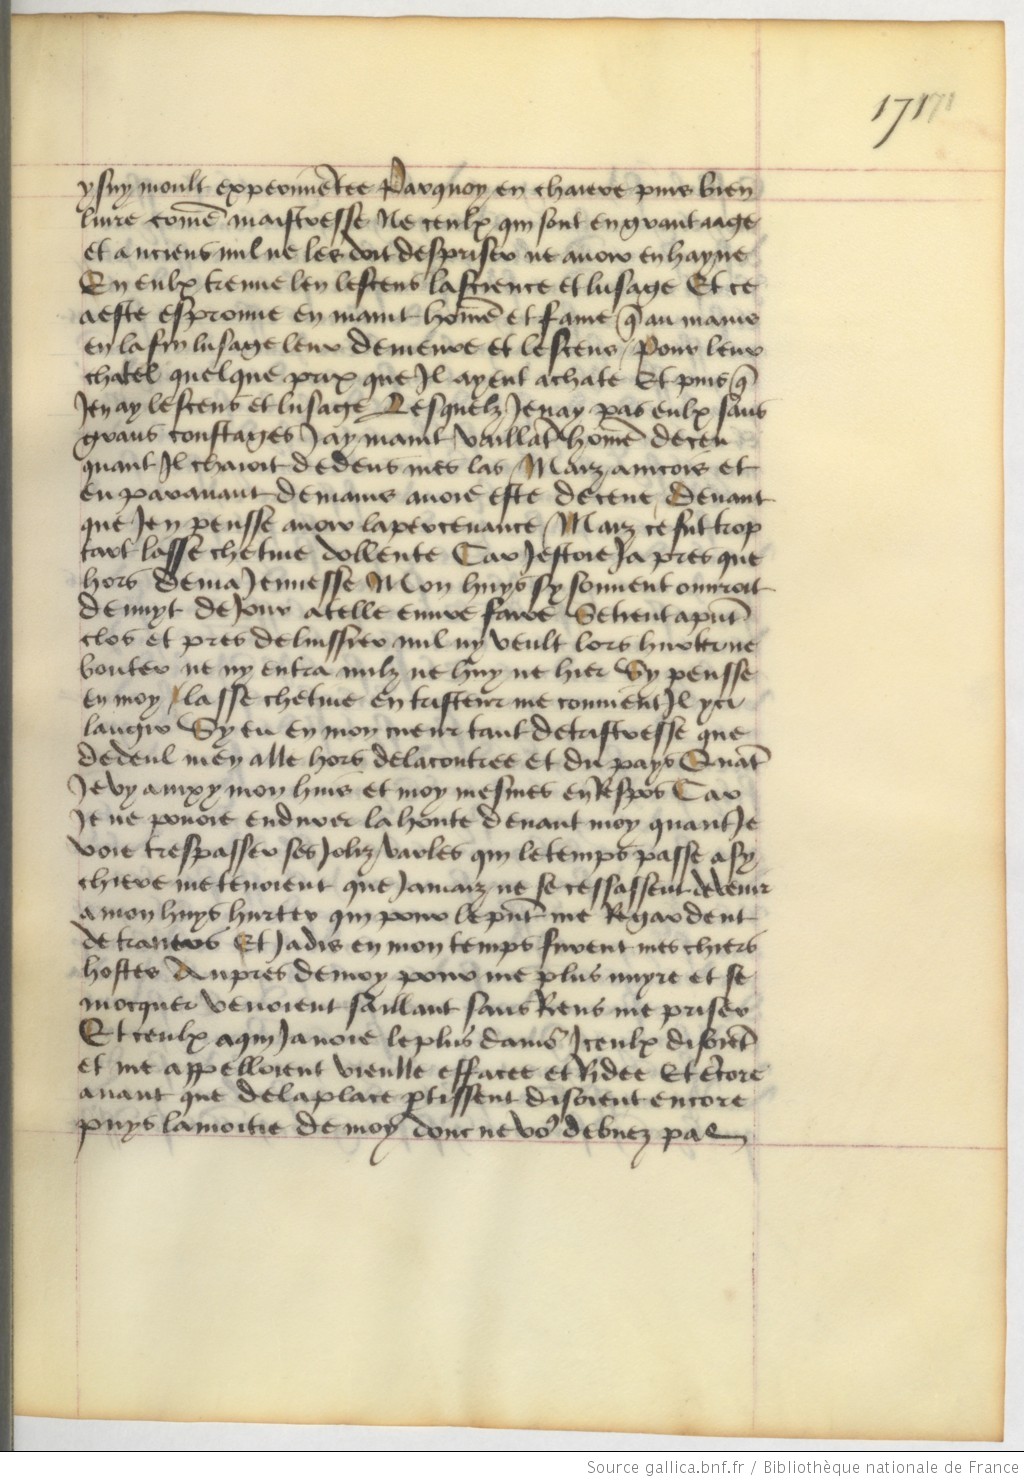 171 171
y suy moult experimẽtee Parquoy en chaiere puis bien
livre com̃e maistresse Ne ceulx qui sont en grant aage
et anciens nul ne les doit despriser ne avoir en hayne
En eulx treuue len le scens la science et lusage Et ce
a este esprouue en maint hom̃e et fame q̃ au mains
en la fin lusage leur demeure et le scens Pour leur
chatel quelque prix que Il ayent achate Et puis q̃
Jen ay le scens et lusage Lesquelz Je nay pas eulx sans
grans constages Jay maint vaillãt hom̃e deceu
quant Il chaioit dedens mes las Maiz aincois et
en paravant de mains avoie este deceue Devant
que Jen peusse avoir lapercevance Maiz ce fut trop
tart lasse chetive dollente Car Jestoie Ja pres que
hors de ma Jennesse Mon huys sy souvent ouvroit
de nuyt de Jour a telle euvre faire Se tient a pñt
clos et pres de luissier nul ny veult lors hurter ne
bouter ne ny entra nulz ne huy ne hier Sy pensse
en moy lasse chetive en tristeur me convient Il yci
languir Sy eu en moy cueur tant de tristresse que
de deul men alle hors de la contree et du pays Quãt
Je vy ainxy mon huis et moy mesmes en Respos Car
Je ne povoie endurer la honte devant moy quant Je
voie trespasser ses Joliz varles qui le temps passe a sy
chiere me tenoient que Jamaiz ne se cessassent de venir
a mon huys hurter qui pour le pñt me Regardent
de travers Et Jadis en mon temps furent mes chiers
hostes Aupres de moy pour me plus nuyre et se
mocquer venoient saillant sans Riens me priser
Et ceulx a qui Javoie le plus damé Iceulx disoiẽt
et me appelloient vieulle effacee et Ridee Et ẽcore
avant que de la place ꝑtissent disoient encore
puys la moitie de moy donc ne voꝰ devuez pas
Source gallica.bnf.fr / Bibliothèque nationale de France